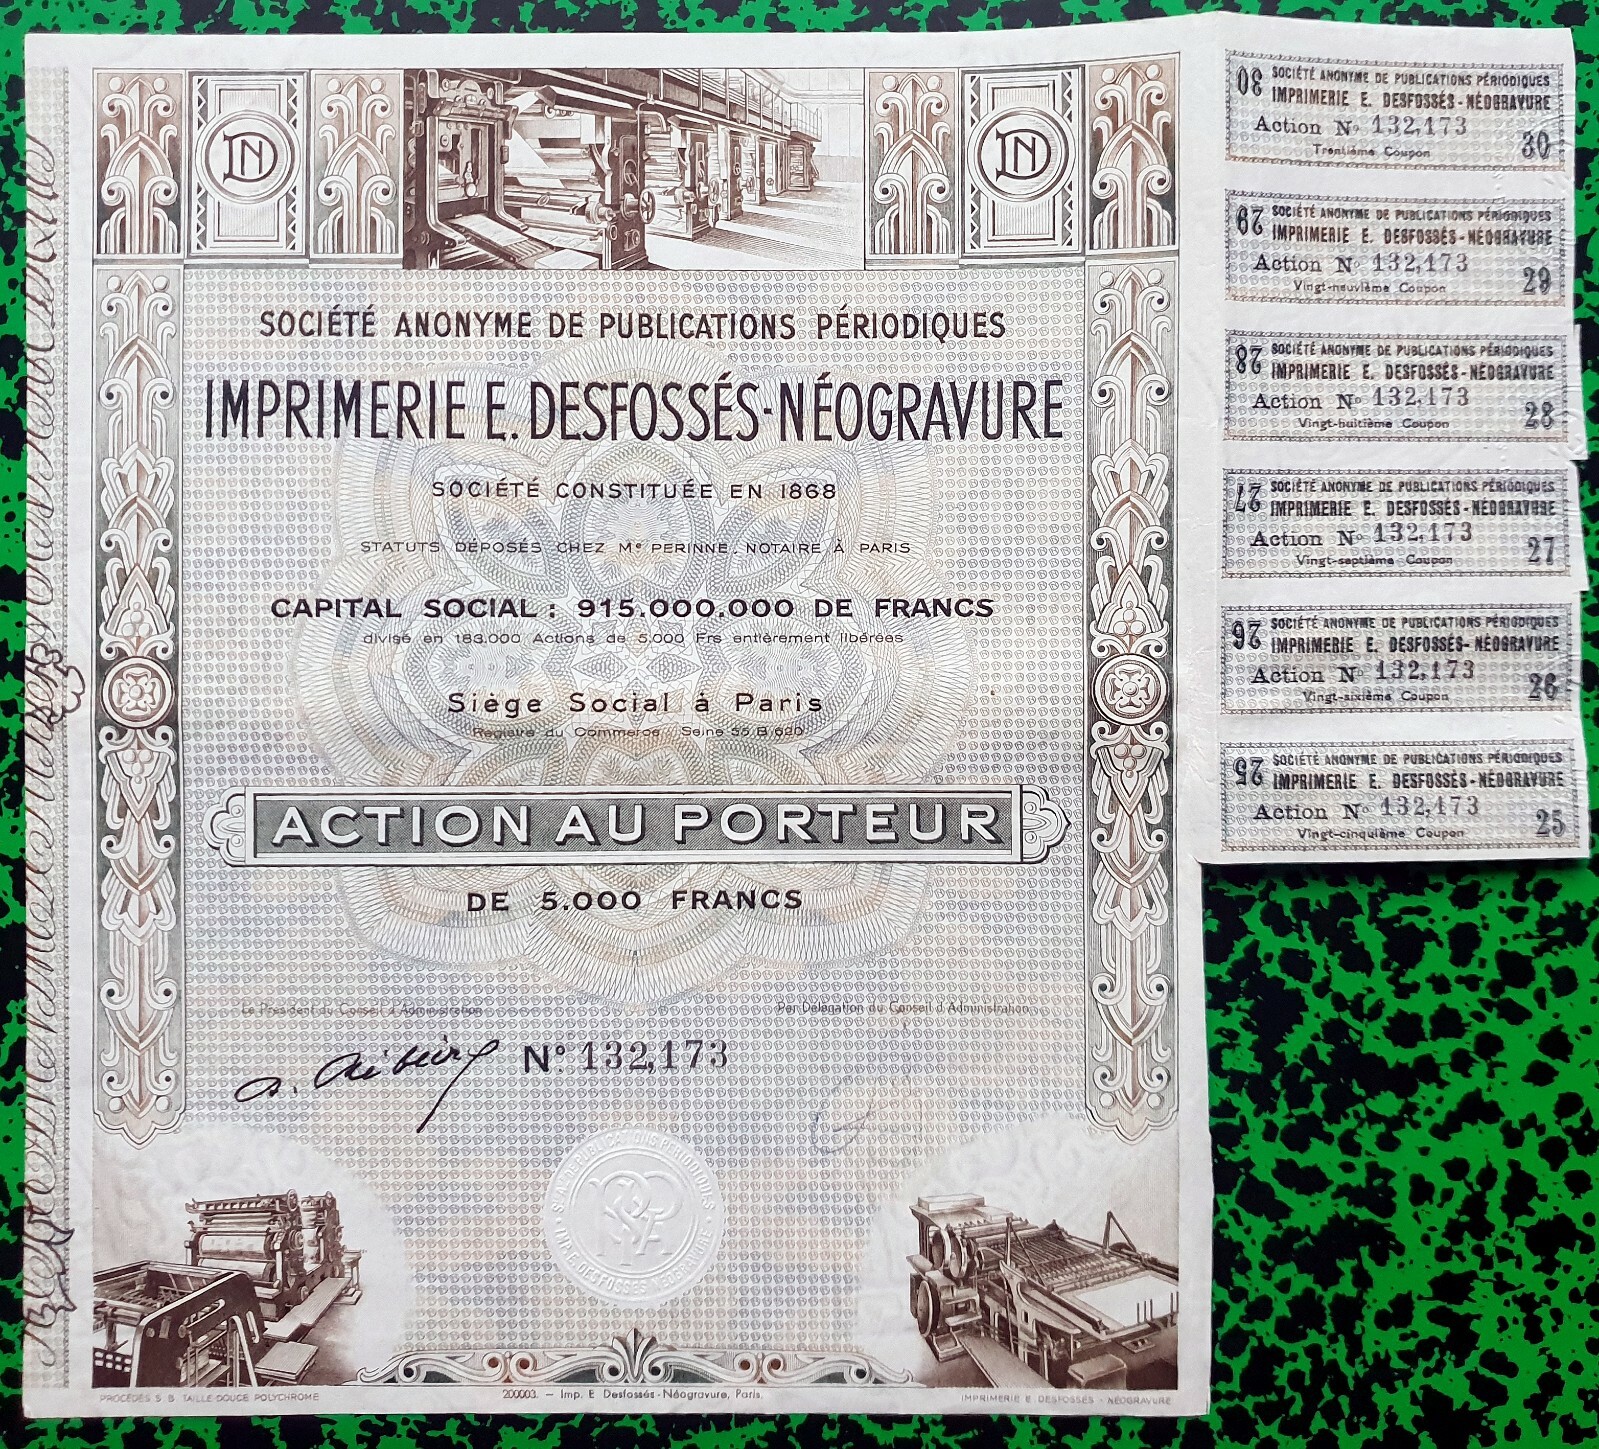 DN
DN
SOCIÉTÉ ANONYME DE PUBLICATIONS PÉRIODIQUES
IMPRIMERIE E. DESFOSSÉS-NÉOGRAVURE
SOCIÉTÉ CONSTITUÉE EN 1868
STATUTS DÉPOSÉS CHEZ Me PERINNE. NOTAIRE À PARIS
CAPITAL SOCIAL : 915.000.000 DE FRANCS
divisé en 183.000 Actions de 5.000 Frs entièrement libérées
Siège Social à Paris
Registre du Commerce Seine 55 B 620
ACTION AU PORTEUR
DE 5.000 FRANCS
Le Président du Conseil d'Administration
Par Délégation du Conseil d'Administration
No. 132,173
S.A. DE PUBLICATIONS PÉRIODIQUES
IMP. E. DESFOSSÉS NÉOGRAVURE
PROCÉDÉS S. B. TAILLE-DOUCE POLYCHROME
200003. — Imp. E. Desfossés-Néogravure, Paris.
IMPRIMERIE E. DESFOSSÉS - NÉOGRAVURE
30 SOCIÉTÉ ANONYME DE PUBLICATIONS PÉRIODIQUES
IMPRIMERIE E. DESFOSSÉS-NÉOGRAVURE
Action No 132,173
Trentième Coupon 30
29 SOCIÉTÉ ANONYME DE PUBLICATIONS PÉRIODIQUES
IMPRIMERIE E. DESFOSSÉS-NÉOGRAVURE
Action No 132,173
Vingt-neuvième Coupon 29
28 SOCIÉTÉ ANONYME DE PUBLICATIONS PÉRIODIQUES
IMPRIMERIE E. DESFOSSÉS-NÉOGRAVURE
Action No 132,173
Vingt-huitième Coupon 28
27 SOCIÉTÉ ANONYME DE PUBLICATIONS PÉRIODIQUES
IMPRIMERIE E. DESFOSSÉS-NÉOGRAVURE
Action No 132,173
Vingt-septième Coupon 27
26 SOCIÉTÉ ANONYME DE PUBLICATIONS PÉRIODIQUES
IMPRIMERIE E. DESFOSSÉS-NÉOGRAVURE
Action No 132,173
Vingt-sixième Coupon 26
25 SOCIÉTÉ ANONYME DE PUBLICATIONS PÉRIODIQUES
IMPRIMERIE E. DESFOSSÉS-NÉOGRAVURE
Action No 132,173
Vingt-cinquième Coupon 25